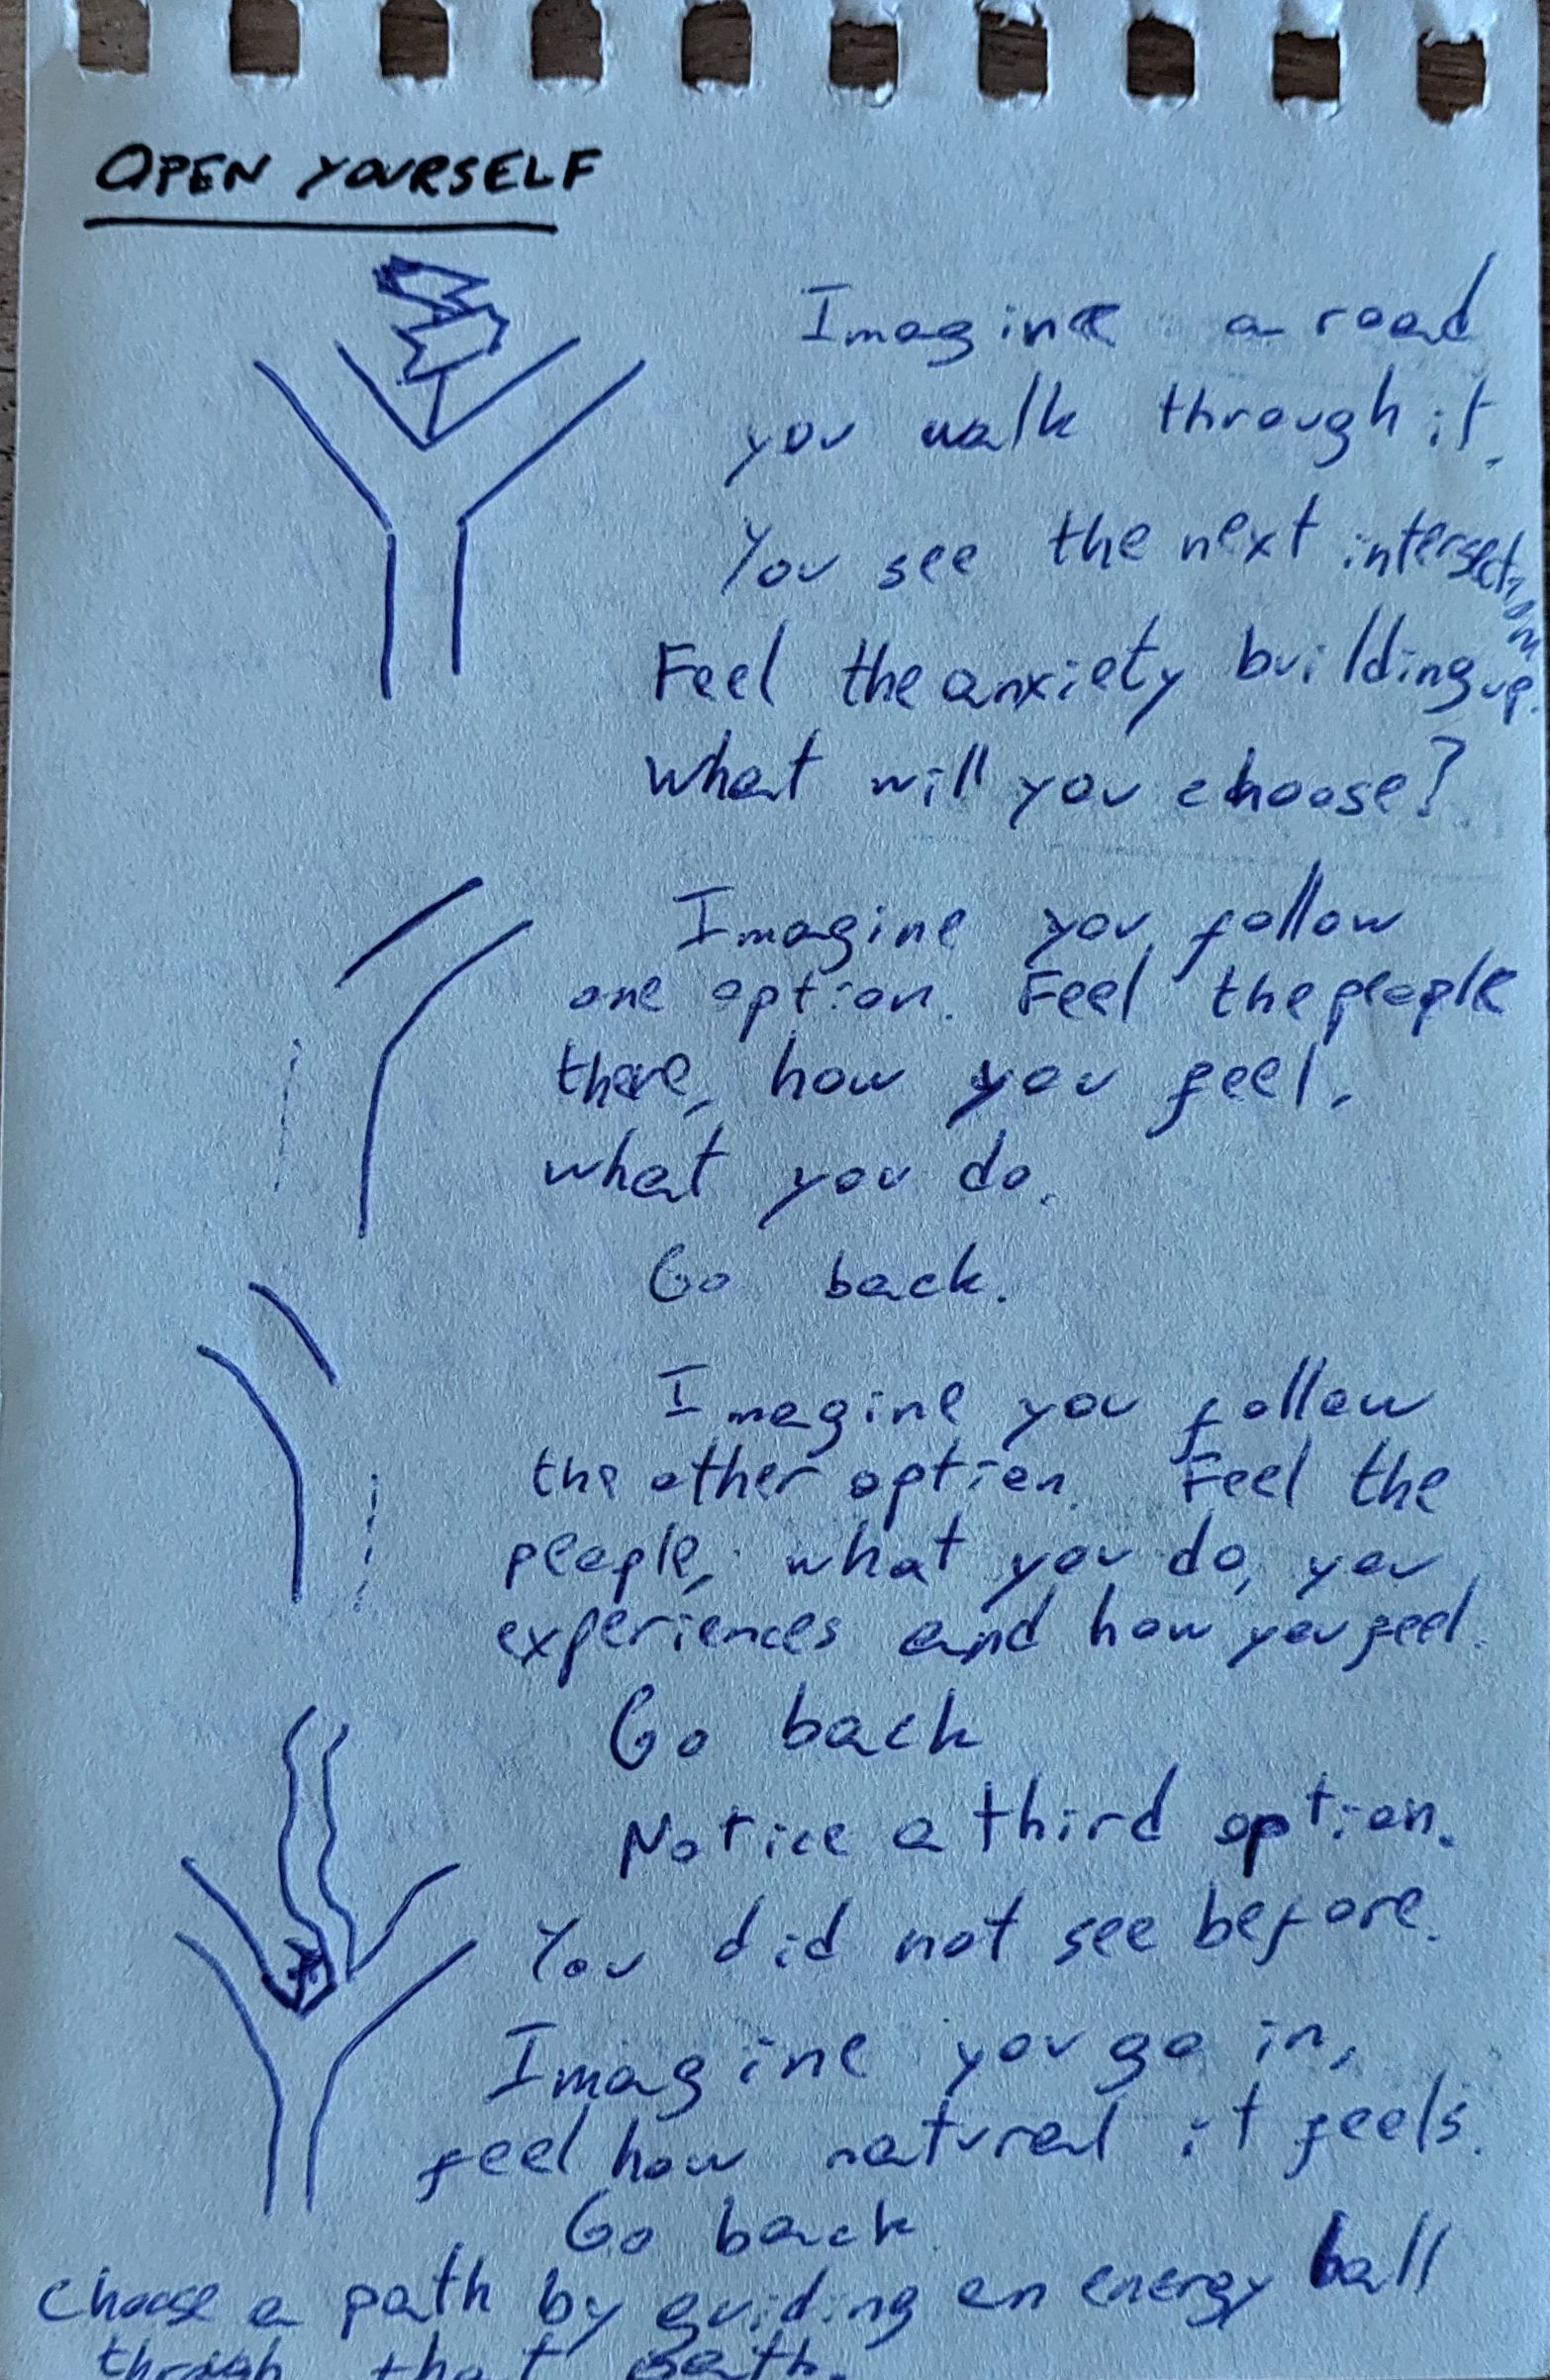 OPEN YOURSELF
Imagine a road
you walk through it.
You see the next intersection.
Feel the anxiety building up.
What will you choose?
Imagine you follow
one option. Feel the people
there, how you feel,
what you do.
Go back.
Imagine you follow
the other option. Feel the
people, what you do, you
experiences and how you feel.
Go back
Notice a third option.
You did not see before.
Imagine you go in,
feel how natural it feels.
Go back.
Choose a path by guiding an energy ball
through that path.